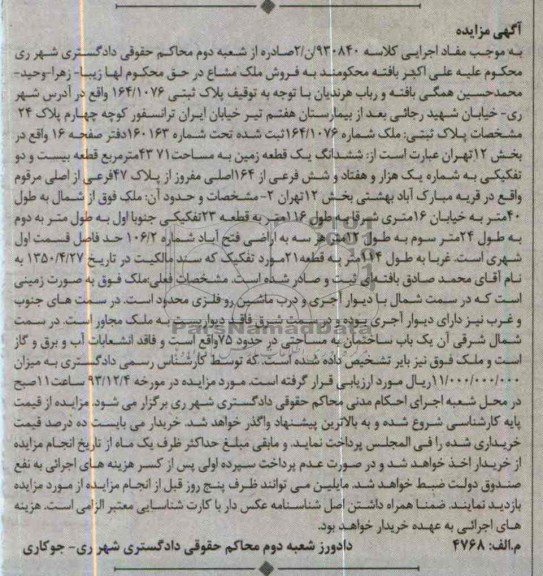 آگهی مزایده
به موجب مفاد اجرایی کلاسه ۹۳۰۸۴۰/ن/۲صادره از شعبه دوم محاکم حقوقی دادگستری شهر ری
محکوم علیه علی اکبر بافته محکومند به فروش ملک مشاع در حق محکوم لها زیبا- زهرا-وحید-
محمدحسین همگی بافته و رباب هرندیان با توجه به توقیف پلاک ثبتی ۱۶۴/۱۰۷۶ واقع در آدرس شهر
ری- خیابان شهید رجائی بعد از بیمارستان هفتم تیر خیابان ایران ترانسفور کوچه چهارم پلاک ۲۴
مشخصات پلاک ثبتی: ملک شماره ۱۶۴/۱۰۷۶ثبت شده تحت شماره ۱۶۳ ۱۶۰دفتر صفحه ۱۶ واقع در
بخش ۱۲تهران عبارت است از: ششدانگ یک قطعه زمین به مساحت۷۱ ۴۳مترمربع قطعه بیست و دو
تفکیکی به شماره یک هزار و هفتاد و شش فرعی از ۱۶۴اصلی مفروز از پلاک ۴۷فرعی از اصلی مرقوم
واقع در قریه مبارک آباد بهشتی بخش ۱۲تهران ۲- مشخصات و حدود آن: ملک فوق از شمال به طول
۴۰متر به خیابان ۱۶متری شرقا به طول ۱۱۶متر به قطعه ۲۳تفکیکی جنوبا اول به طول متر به دوم
به طول ۲۴متر سوم به طول ۱۲متر هر سه به اراضی فتح آباد شماره ۱۰۶/۲ حد فاصل قسمت اول
شهری است. غربا به طول ۱۱۴متر به قطعه۲۱مورد تفکیک که سند مالکیت در تاریخ ۱۳۵۰/۴/۲۷ به
نام آقای محمد صادق بافته‌ای ثبت و صادر شده است. مشخصات فعلی:ملک فوق به صورت زمینی
است که در سمت شمال با دیوار آجری و درب ماشین رو فلزی محدود است. در سمت های جنوب
و غرب نیز دارای دیوار آجری بوده و در سمت شرق فاقد دیوار است به ملک مجاور است. در سمت
شمال شرقی آن یک باب ساختمان به مساحتی در حدود ۷۵واقع است و فاقد انشعابات آب و برق و گاز
است و ملک فوق نیز بایر تشخیص داده شده است. که توسط کارشناس رسمی دادگستری به میزان
۱۱/۰۰۰/۰۰۰/۰۰۰ریال مورد ارزیابی قرار گرفته است. مورد مزایده در مورخه ۹۳/۱۲/۴ ساعت ۱۱صبح
در محل شعبه اجرای احکام مدنی محاکم حقوقی دادگستری شهر ری برگزار می شود. مزایده از قیمت
پایه کارشناسی شروع شده و به بالاترین پیشنهاد واگذر خواهد شد. خریدار می بایست ده درصد قیمت
خریداری شده را فی المجلس پرداخت نماید. و مابقی مبلغ حداکثر ظرف یک ماه از تاریخ انجام مزایده
از خریدار اخذ خواهد شد و در صورت عدم پرداخت سپرده اولی پس از کسر هزینه های اجرائی به نفع
صندوق دولت ضبط خواهد شد. مایلین می توانند ظرف پنج روز قبل از انجام مزایده از مورد مزایده
بازدید نمایند. ضمنا همراه داشتن اصل شناسنامه عکس دار یا کارت شناسایی معتبر الزامی است. هزینه
های اجرائی به عهده خریدار خواهد بود.
م.الف: ۴۷۶۸ دادورز شعبه دوم محاکم حقوقی دادگستری شهر ری- جوکاری
ParsNamadData